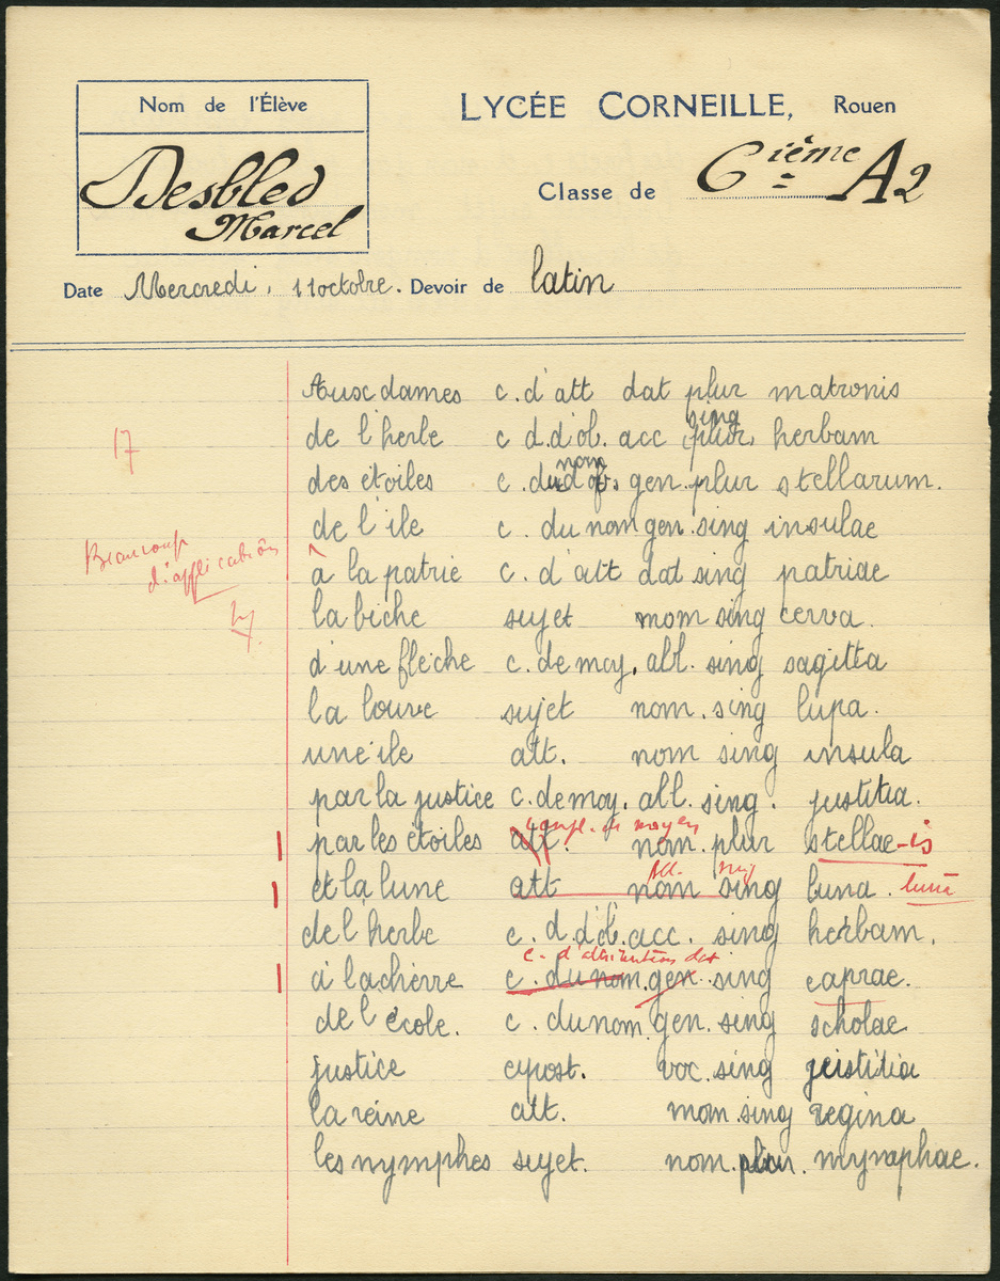 Nom de l'Élève
Desbled
Marcel
LYCÉE CORNEILLE, Rouen
Classe de 6ième A2
Date Mercredi, 11 octobre. Devoir de latin
17
Beaucoup
d'application
Aux dames c. d'att dat plur matronis
sing
de l'herbe c d.d'ob. acc plur, herbam
nom
des étoiles c. du gen. plur stellarum.
de l'ile c. du nom gen. sing insulae
a la patrie c. d'att dat sing patriae
la biche sujet nom sing cerva.
d'une flèche c. de moy. abl. sing sagitta
la louve sujet nom. sing lupa.
une île att. nom sing insula
par la justice c. de moy. abl. sing. justitia.
compl. de moyen
par les étoiles att. nom. plur stellae-is
Abl. sing
et la lune att nom sing luna. lunā
de l'herbe c. d. d'ob. acc. sing herbam.
c. d'attribution dat
à la chèvre c. du nom. gen. sing caprae.
de l'école. c. du nom gen. sing scholae
justice apost. voc. sing justitia
la reine att. nom sing regina
les nymphes sujet. nom. plur. nymphae.